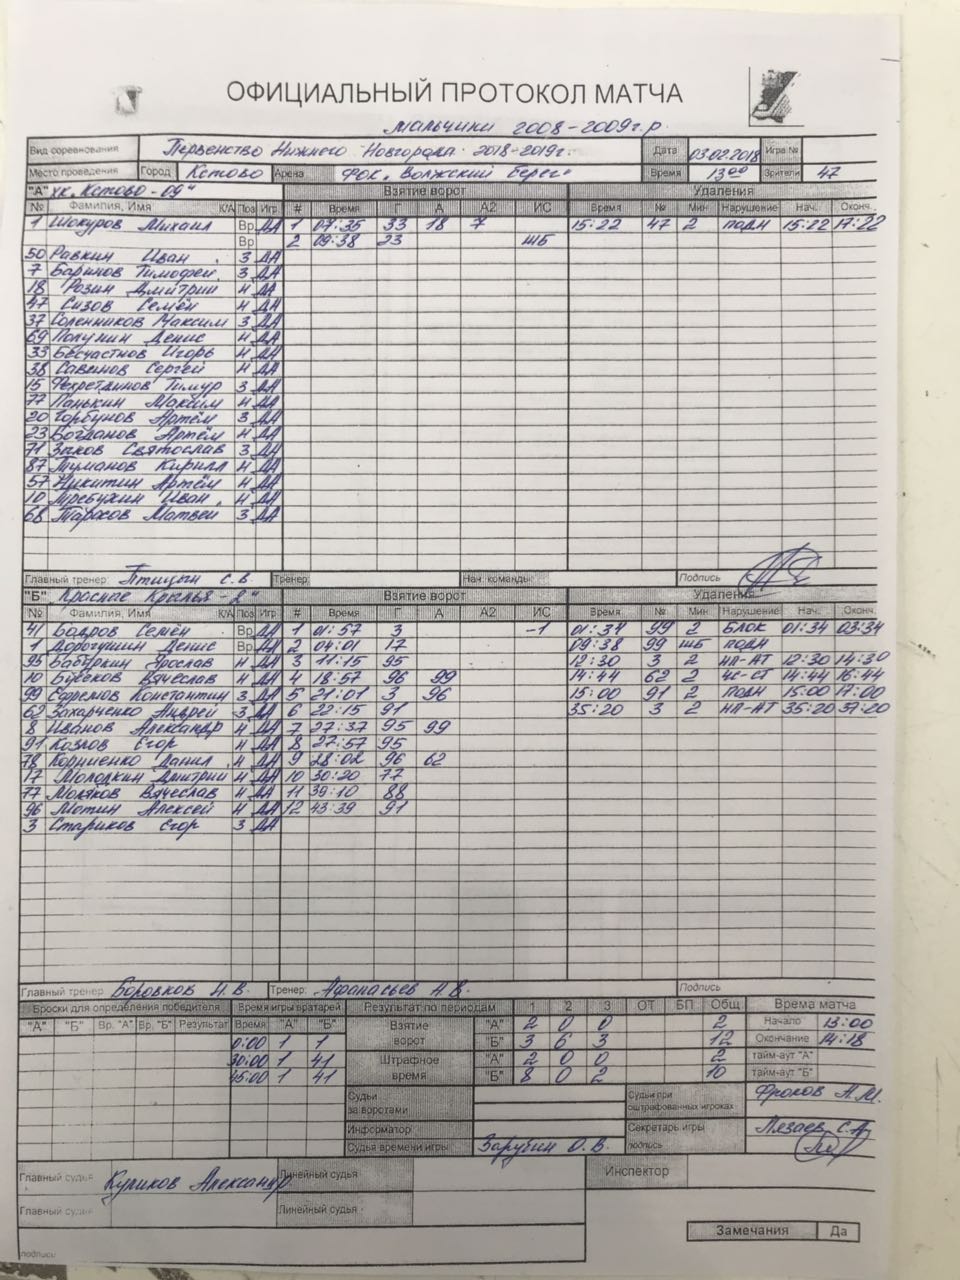 ОФИЦИАЛЬНЫЙ ПРОТОКОЛ МАТЧА
мальчики 2008-2009г.р.
Вид соревнования Первенство Нижнего Новгорода 2018-2019г. Дата 03.02.2018 Игра №
Место проведения Город Кстово Арена ФОК "Волжский Берег" Время 13:00 Зрители 47
"А" ХК "Кстово-09" Взятие ворот Удаления
№ Фамилия, Имя К/А Поз Игр # Время Г А А2 ИС Время № Мин Нарушение Нач. Оконч.
1 Шокуров Михаил Вр ДА 1 07:35 33 18 7 15:22 47 2 ПОДН 15:22 17:22
Вр 2 09:38 23 ШБ
50 Равкин Иван З ДА
7 Баринов Тимофей З ДА
18 Розин Дмитрий Н ДА
47 Сизов Семён Н ДА
37 Соленников Максим З ДА
69 Полунин Денис Н ДА
33 Бесчастнов Игорь Н ДА
38 Савинов Сергей Н ДА
15 Фехретдинов Тимур З ДА
77 Панькин Максим Н ДА
20 Горбунов Артём З ДА
23 Богданов Артём Н ДА
71 Зыков Святослав З ДА
87 Туманов Кирилл Н ДА
57 Никитин Артём Н ДА
10 Требухин Иван Н ДА
68 Тарасов Матвей З ДА
Главный тренер: Птицын С.В. Тренер: Нач. команды Подпись
"Б" "Красные Крылья-2" Взятие ворот Удаления
№ Фамилия, Имя К/А Поз Игр # Время Г А А2 ИС Время № Мин Нарушение Нач. Оконч.
41 Бодров Семён Вр ДА 1 01:57 3 -1 01:34 99 2 БЛОК 01:34 03:34
1 Дорогушин Денис Вр ДА 2 04:01 17 09:38 99 ШБ ПОДН
95 Бабушкин Ярослав Н ДА 3 11:15 95 12:30 3 2 НП-АТ 12:30 14:30
10 Вячеслав Н ДА 4 18:57 96 99 14:44 62 2 ЧС-СТ 14:44 16:44
99 Ефремов Константин З ДА 5 21:01 3 96 15:00 91 2 ПОДН 15:00 17:00
62 Захарченко Андрей З ДА 6 22:15 91 35:20 3 2 НП-АТ 35:20 37:20
8 Иванов Александр Н ДА 7 27:37 95 99
91 Козлов Егор Н ДА 8 27:57 95
78 Корниенко Данил Н ДА 9 28:02 96 62
17 Молодкин Дмитрий Н ДА 10 30:20 77
77 Моляков Вячеслав Н ДА 11 39:10 88
96 Мотин Алексей Н ДА 12 43:39 91
3 Стариков Егор З ДА
Главный тренер Боровков Н.В. Тренер: Афанасьев А.В. Подпись
Броски для определения победителя Время игры вратарей Результат по периодам 1 2 3 ОТ БП Общ Время матча
"А" "Б" Вр. "А" Вр. "Б" Результат Время "А" "Б" Взятие ворот "А" 2 0 0 2 Начало 13:00
0:00 1 1 "Б" 3 6 3 12 Окончание 14:18
30:00 1 41 Штрафное время "А" 2 0 0 2 тайм-аут "А"
45:00 1 41 "Б" 8 0 2 10 тайм-аут "Б"
Судьи за воротами Судьи при оштрафованных игроках Фролов Н.М.
Информатор Секретарь игры Лязаев С.А.
Судья времени игры Зарубин О.В. подпись
Главный судья Куликов Александр Линейный судья Инспектор
Главный судья Линейный судья
Замечания Да
подписи